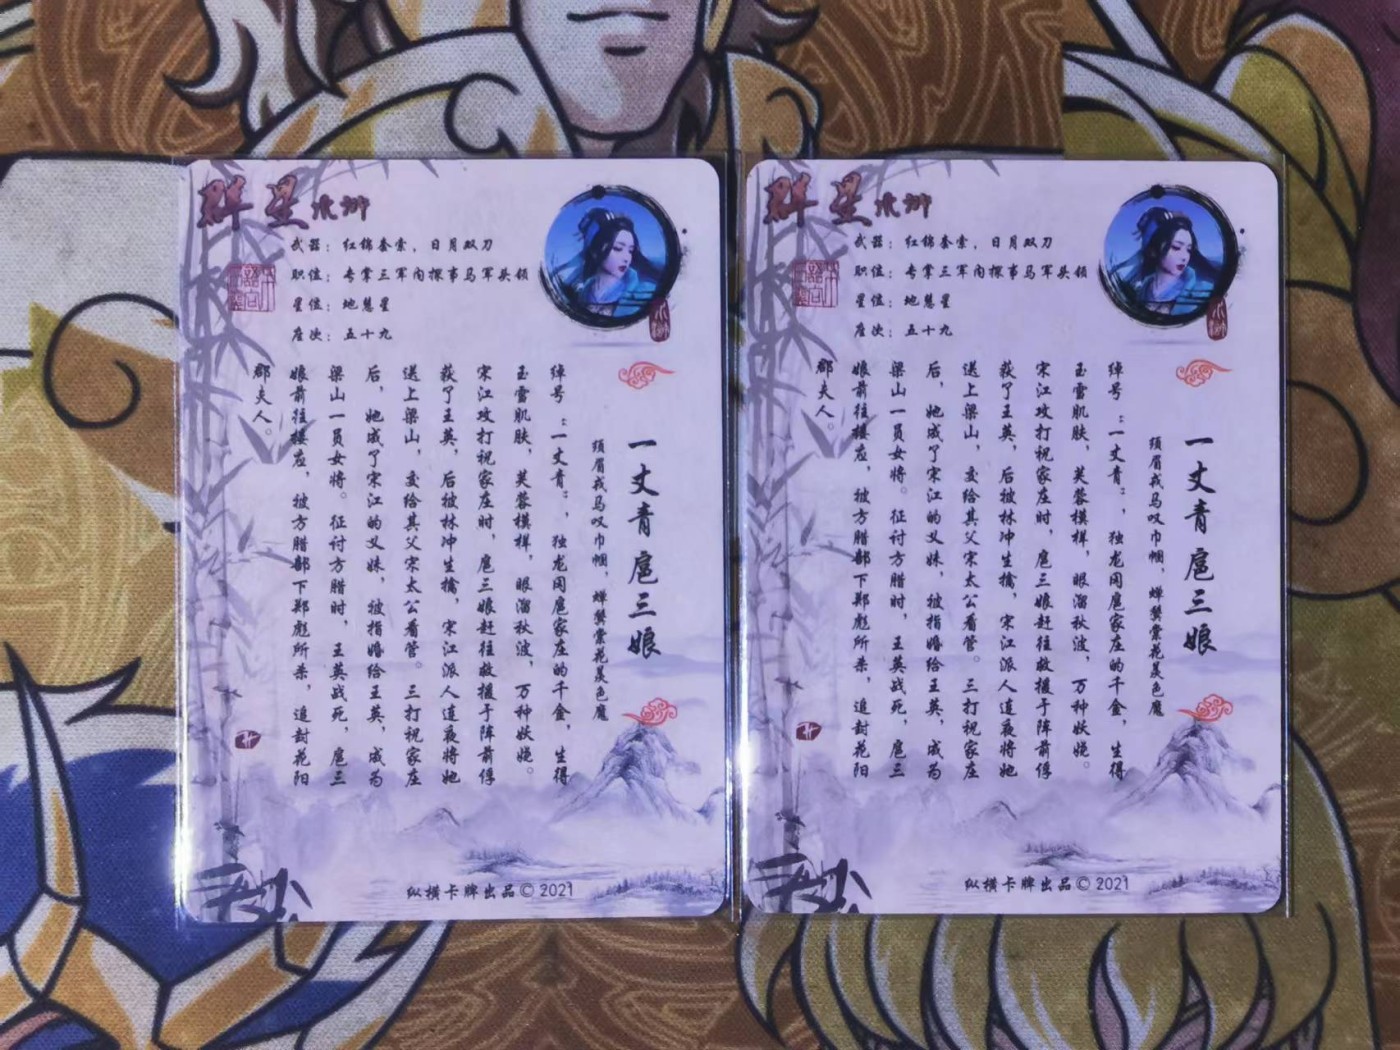 群星水浒
武器：红锦套索，日月双刀
职位：专掌三军内探事马军头领
星位：地慧星
座次：五十九
水浒
一丈青扈三娘
须眉戎马叹巾帼，蝉鬓棠花晟色魔
绰号：一丈青：，独龙冈扈家庄的千金，生得
玉雪肌肤，芙蓉模样，眼溜秋波，万种妖娆。
宋江攻打祝家庄时，扈三娘赶往救援于阵前俘
获了王英，后被林冲生擒，宋江派人连夜将她
送上梁山，交给其父宋太公看管。三打祝家庄
后，她成了宋江的义妹，被指婚给王英，成为
梁山一员女将。征讨方腊时，王英战死，扈三
娘前往接应，被方腊部下郑彪所杀，追封花阳
郡夫人。
纵横卡牌出品©2021
群星水浒
武器：红锦套索，日月双刀
职位：专掌三军内探事马军头领
星位：地慧星
座次：五十九
水浒
一丈青扈三娘
须眉戎马叹巾帼，蝉鬓棠花晟色魔
绰号：一丈青：，独龙冈扈家庄的千金，生得
玉雪肌肤，芙蓉模样，眼溜秋波，万种妖娆。
宋江攻打祝家庄时，扈三娘赶往救援于阵前俘
获了王英，后被林冲生擒，宋江派人连夜将她
送上梁山，交给其父宋太公看管。三打祝家庄
后，她成了宋江的义妹，被指婚给王英，成为
梁山一员女将。征讨方腊时，王英战死，扈三
娘前往接应，被方腊部下郑彪所杀，追封花阳
郡夫人。
纵横卡牌出品©2021